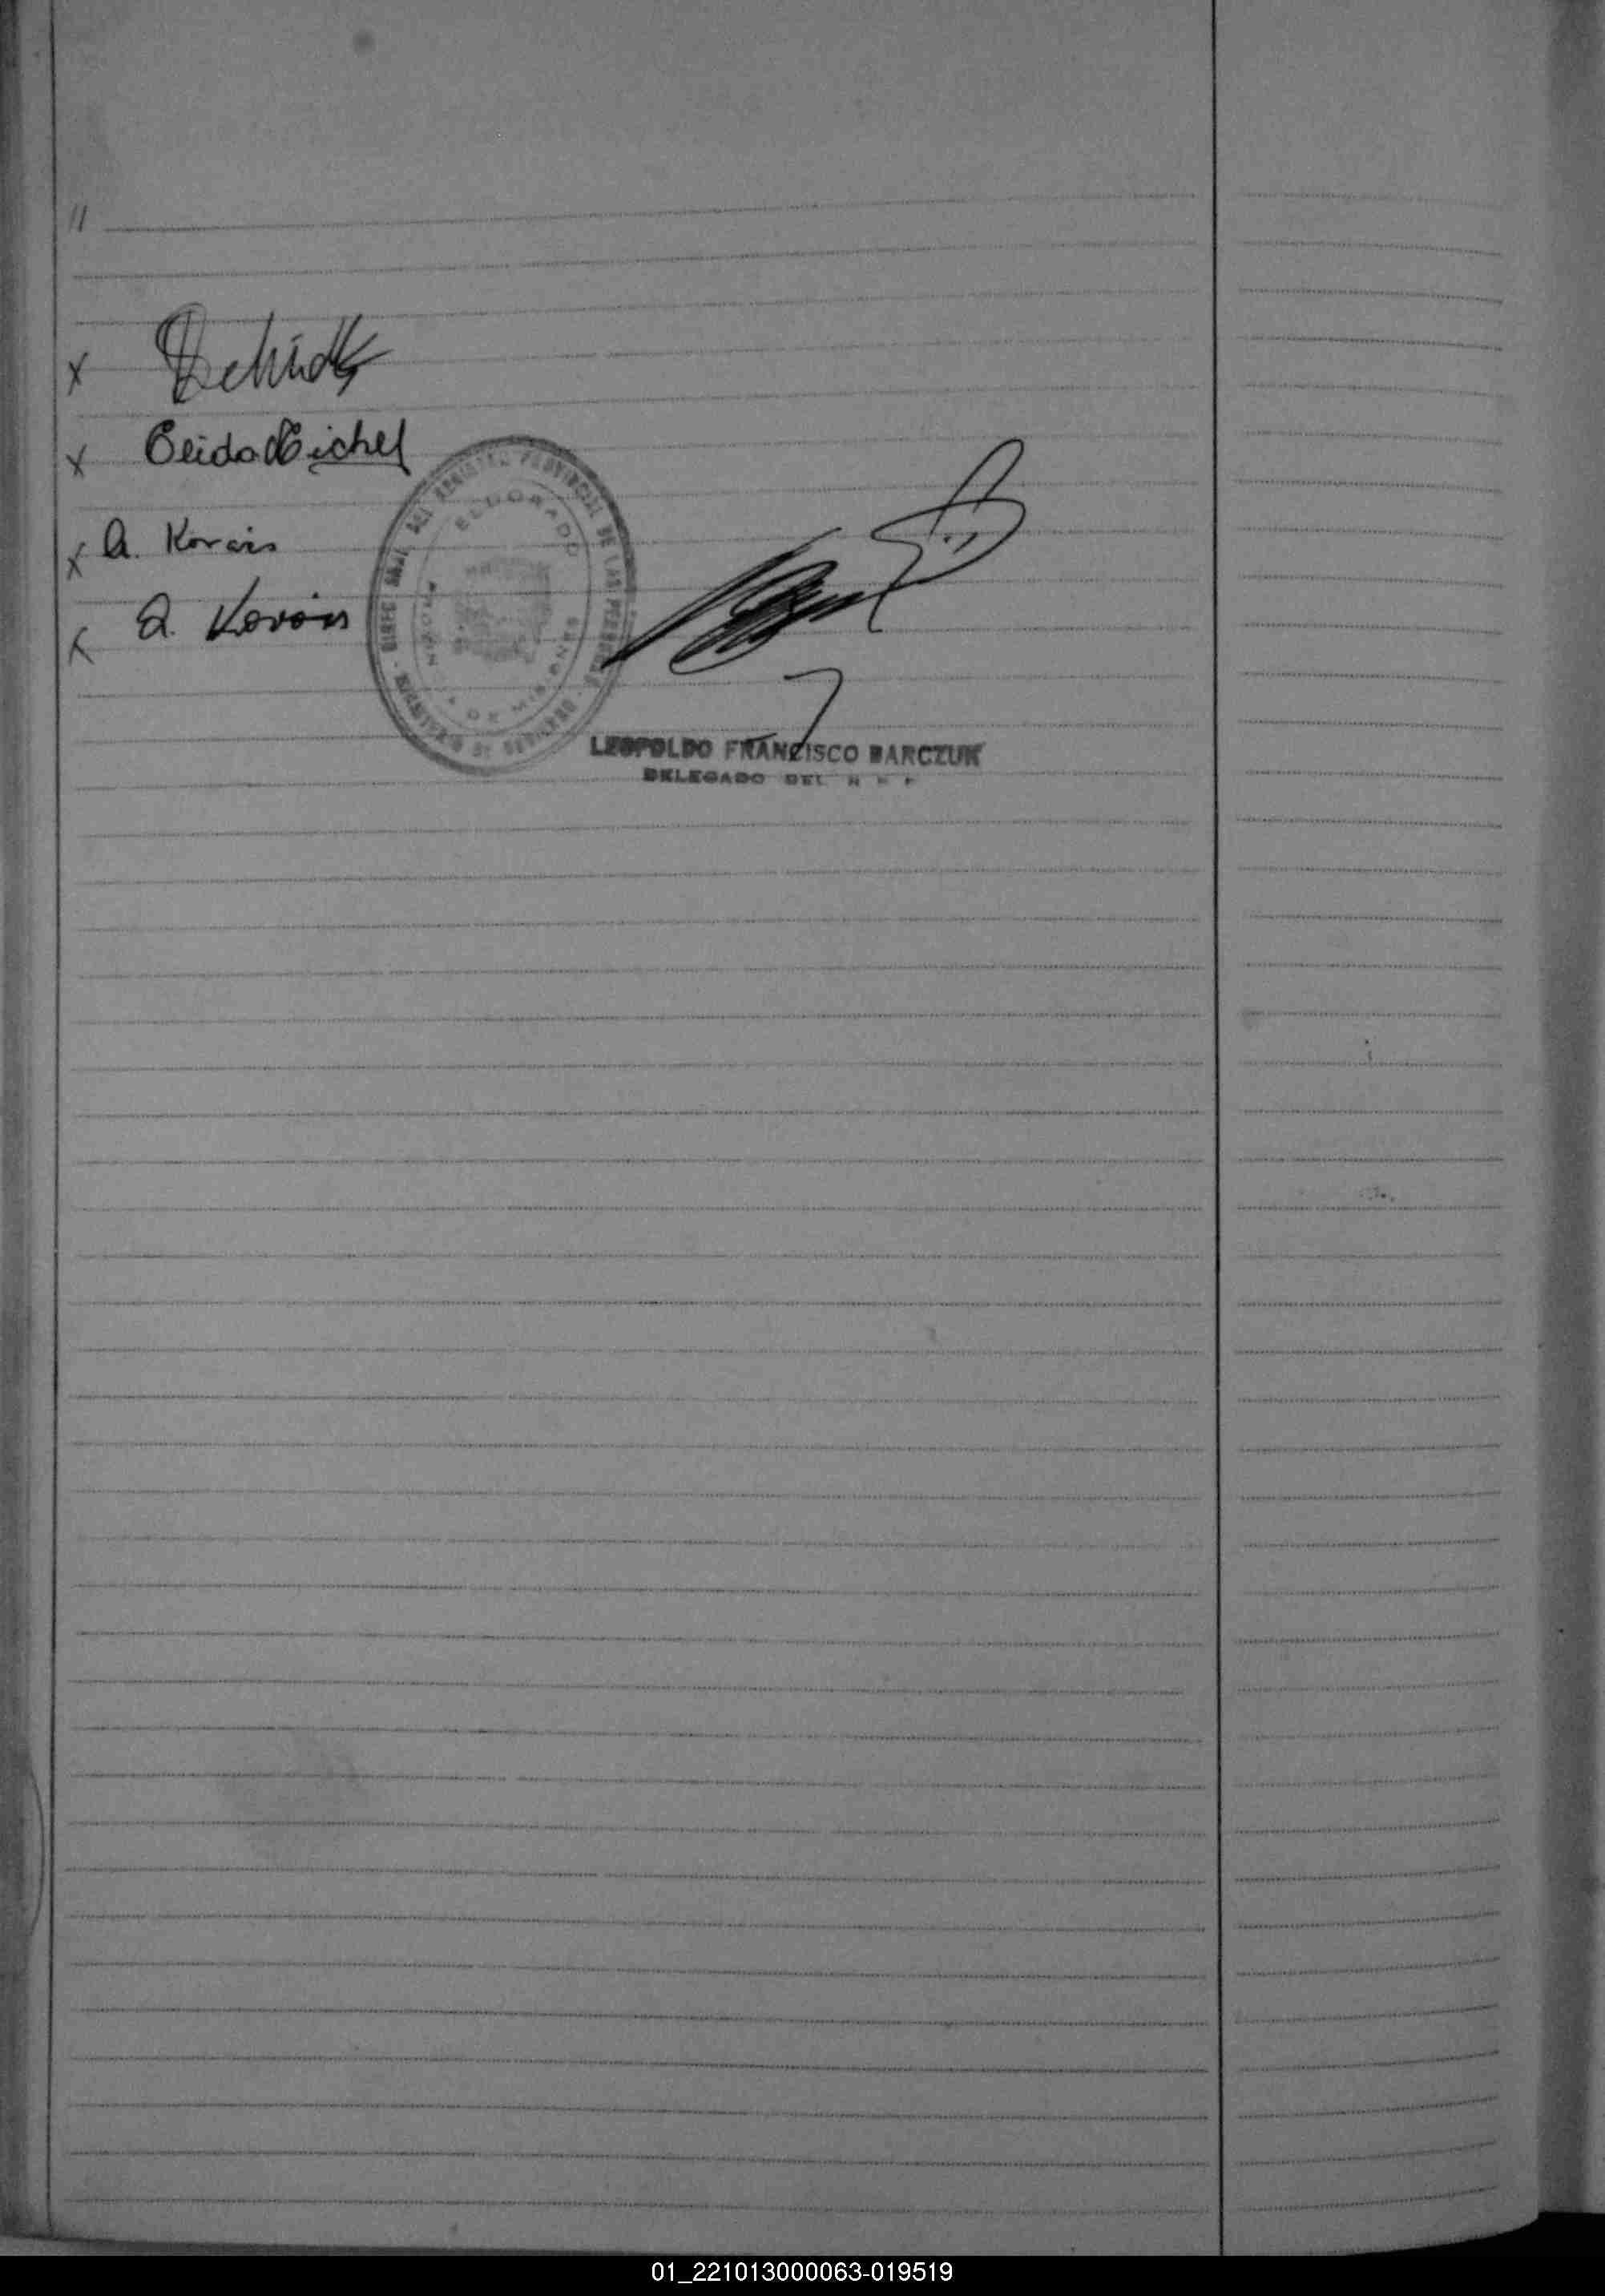 //
x
x Elida Eichel
x A. Kovais
x A. Kovais
DIREC. GRAL. DEL REGISTRO PROVINCIAL DE LAS PERSONAS - MINISTERIO DE GOBIERNO -
ELDORADO
PROVINCIA DE MISIONES
LEOPOLDO FRANCISCO BARCZUK
DELEGADO DEL R P P
01_221013000063-019519